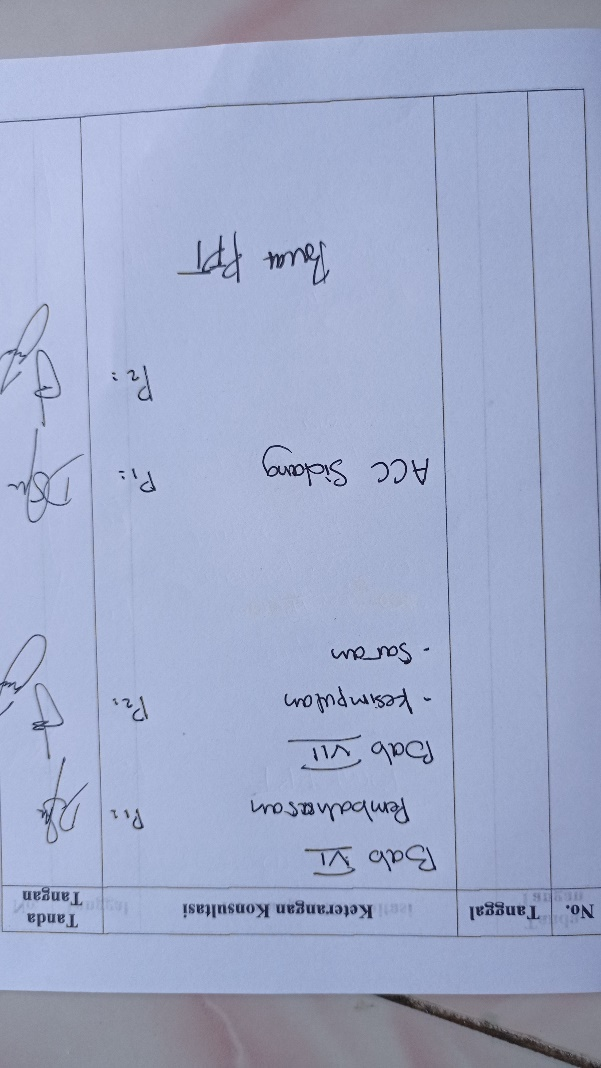 No. Tanggal Keterangan Konsultasi Tanda Tangan
Bab VI
Pembahasan P1:
Bab VII
- kesimpulan P2:
- Saran
ACC Sidang P1:
P2:
PPT